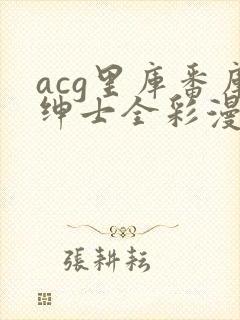 acg里库番库
绅士全彩漫
張耕耘